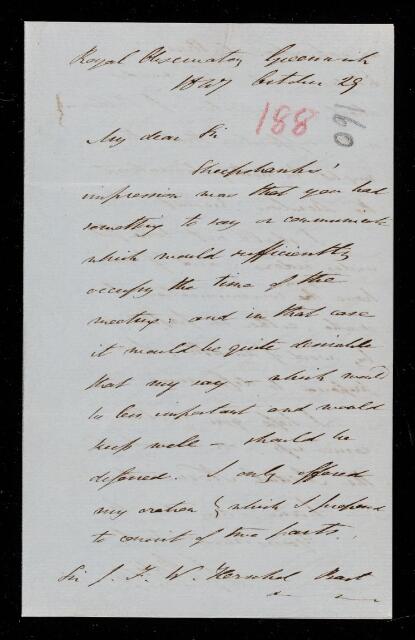 Royal Observatory Greenwich
1847 October 29
188
160
My dear Sir
Sheepshanks'
impression was that you had
something to say or communicate
which would sufficiently
occupy the time of the
meeting: and in that case
it would be quite desirable
that my say – which would
be less important and would
keep well – should be
deferred. I only offered
my oration (which I proposed
to consist of two parts,
Sir J. F. W. Herschel Bart